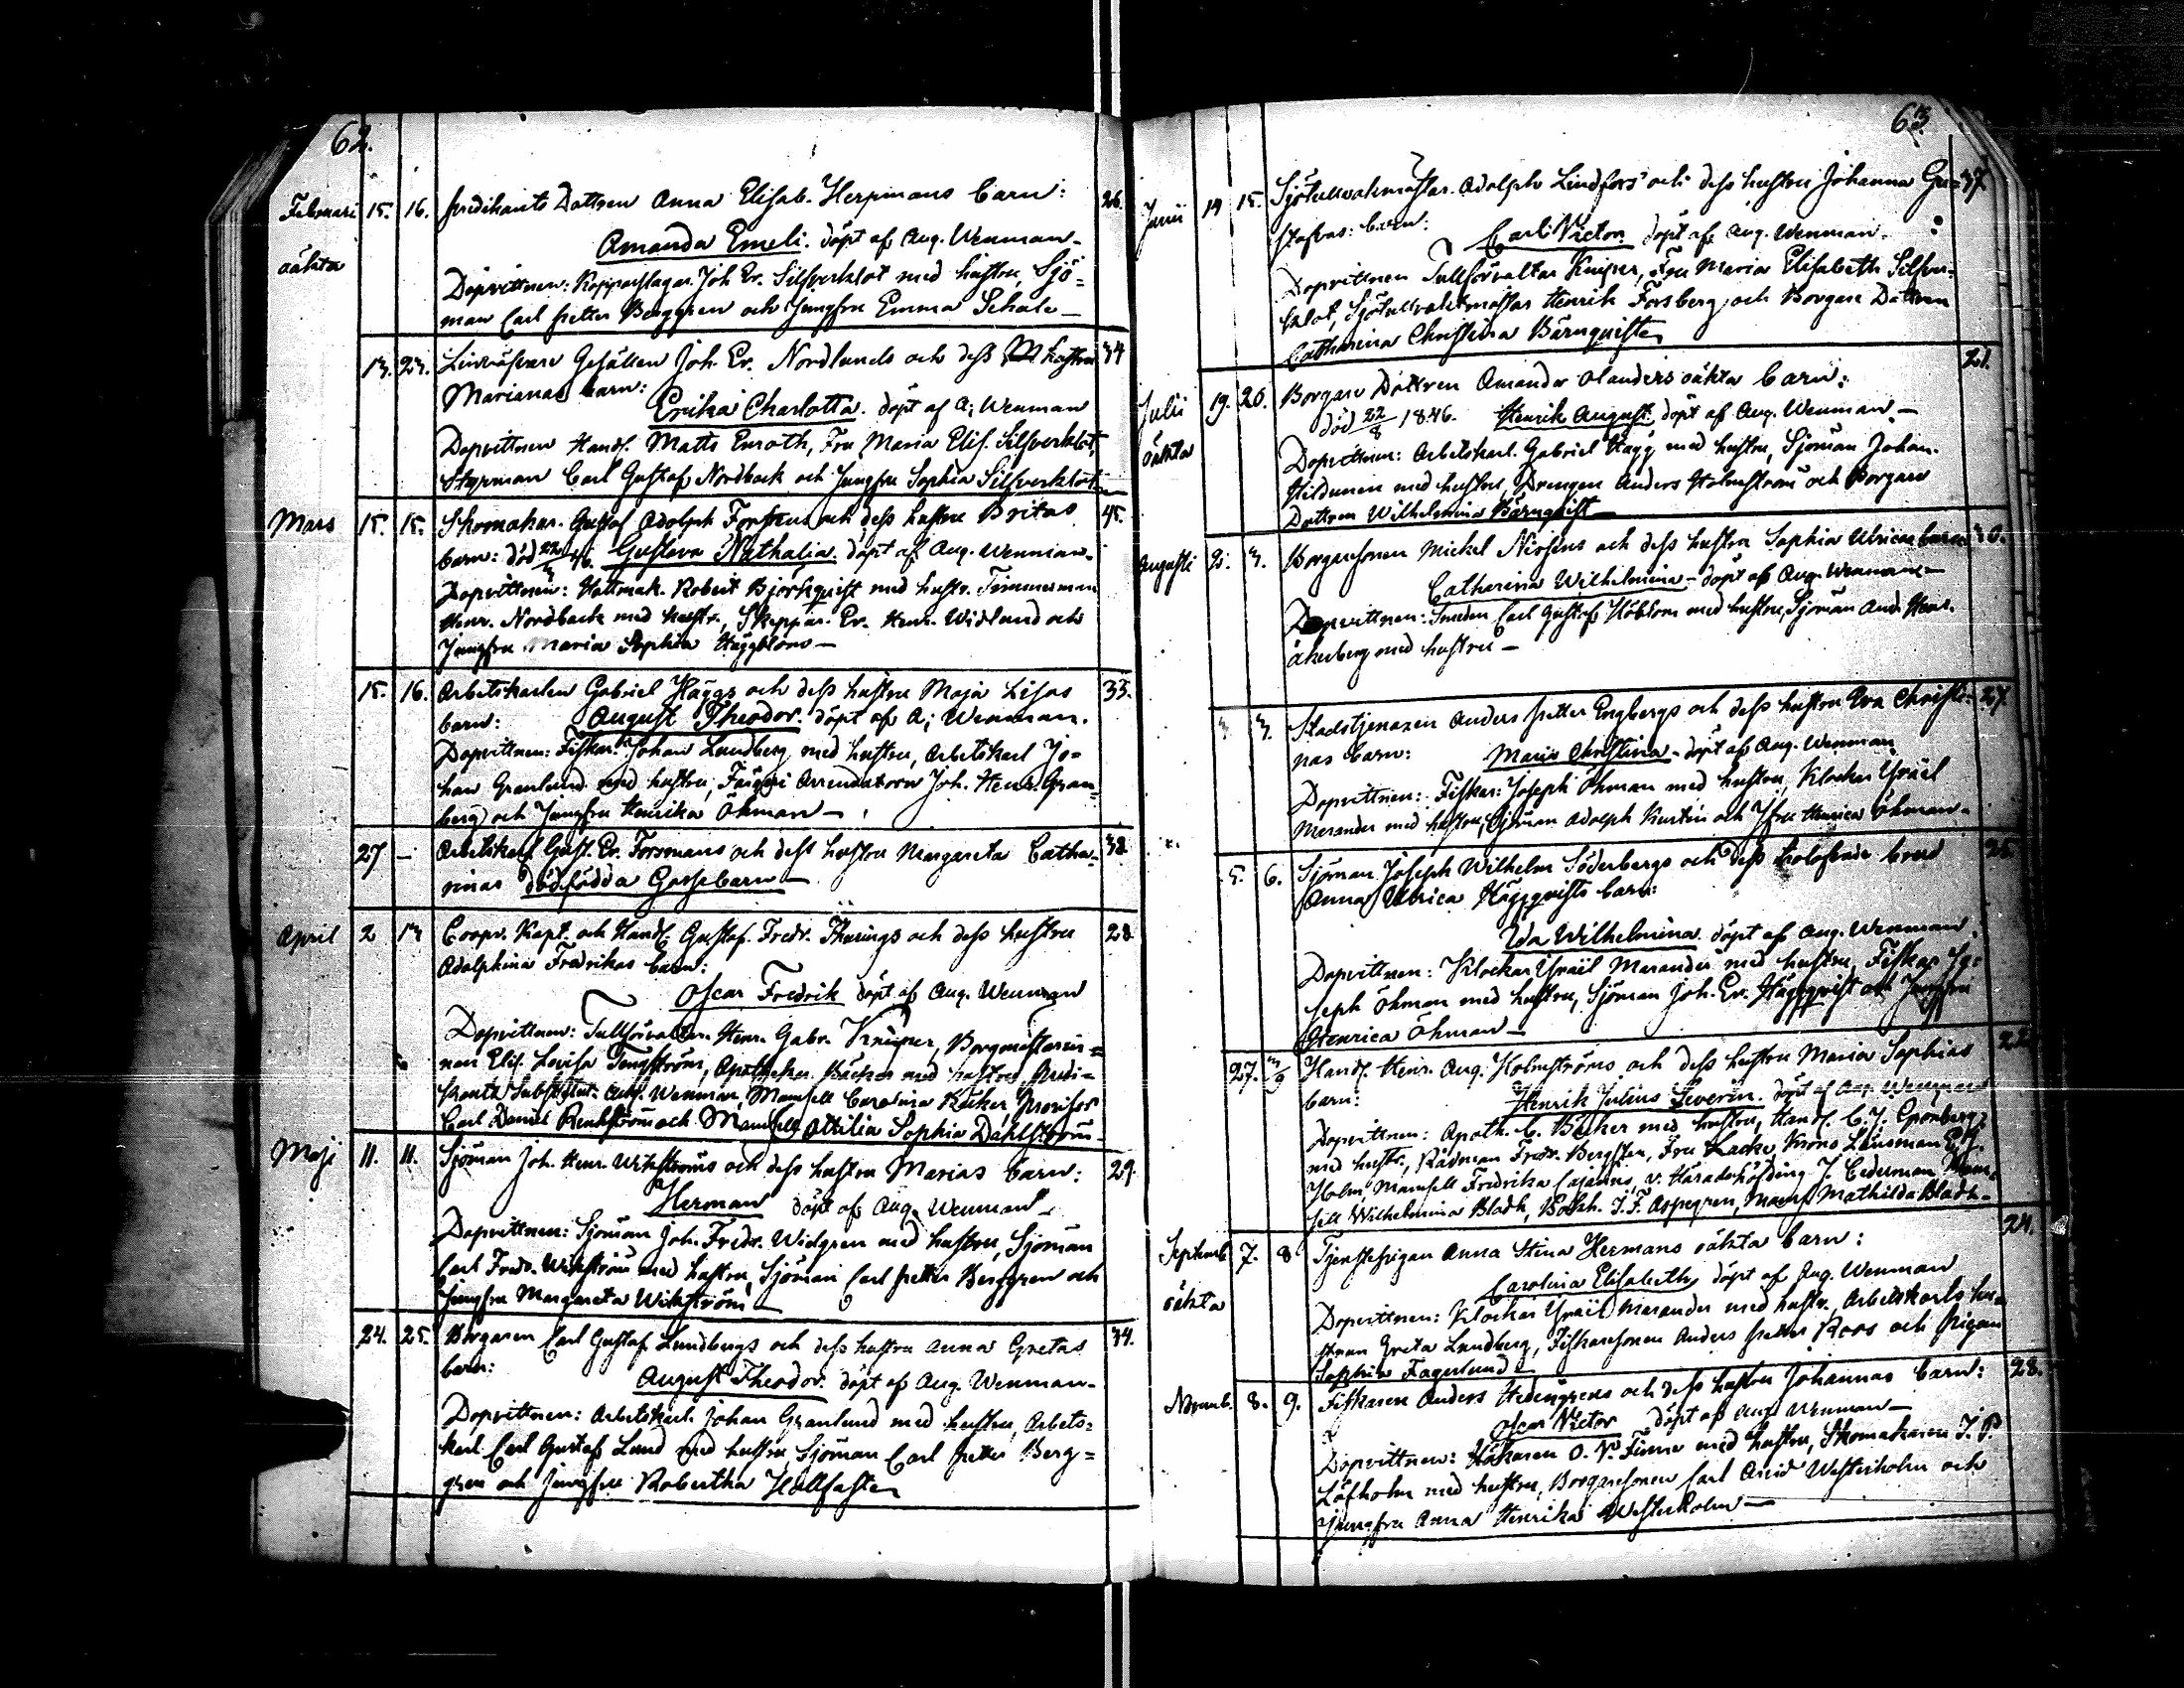 62.
Februari 15. 16. predikants Dottren Anna Elisab. Herpmans barn: 26.
oäkta
Amanda Emeli. döpt af Aug. Wenman.
Dopvittnen: Kopparslagar. Joh. Er. Silfverklot med hustru, Sjö-
man Carl Petter Berggren och Jungfru Emma Schale
13. 23. Linväfvare Gesällen Joh. Er. Nordlunds och dess hustru 34
Marianas barn:
Erika Charlotta. döpt af A: Wenman
Dopvittnen Handl. Matts Enroth, Fru Maria Elis. Silfverklot,
Styrman Carl Gustaf Nordback och Jungfru Sophia Silfverklot
Mars 15. 15. Skomakar. Gustaf Adolph Forstens och dess hustru Britas 45.
barn: död 22/3 46. Gustava Nathalia. döpt af Aug. Wenman.
Dopvittnen: Hattmak. Robert Björkqvist med hustr. Timmerman
Henr. Nordback med hustr., Skeppar. Er. Henr. Widlund och
Jungfru Maria Sophia Häggblom
15. 16. Arbetskarlen Gabriel Häggs och dess hustru Maja Lisas 33.
barn: August Theodor. döpt af A: Wenman.
Dopvittnen: Fiskar. Johan Lundberg med hustru, Arbetskarl Jo-
han Granlund med hustru, Färgeri Arrendatorn Joh. Henr. Gran-
berg och Jungfru Henrika Öhman
27 – Arbetskarl Gust. Er. Forsmans och dess hustru Margareta Catha- 38
rinas dödfödda Gossebarn
April 2 13 Coopv. Kapt. och Handl. Gustaf Fredr. Thurings och dess hustru 28
Adolphina Fredrikas barn:
Oscar Fredrik döpt af Aug. Wenman
Dopvittnen: Tullförvaltar. Henr. Gabr. Kniper, Borgmästarin-
nan Elis. Lovisa Tengström, Apothekar. Bäcker med hustru, Predi-
kants Substitut. Aug. Wenman, Mamsell Carolina Bäcker, Provisor
Carl Daniel Renhström och Mamsell Ottilia Sophia Dahlström
Maji 11. 11. Sjöman Joh. Henr. Wikströms och dess hustru Marias barn: 29.
Herman döpt af Aug. Wenman
Dopvittnen: Sjöman Joh. Fredr. Widgren med hustru, Sjöman
Carl Fredr. Wikström med hustru, Sjöman Carl Petter Berggren och
Jungfru Margareta Wikström
24. 25. Borgaren Carl Gustaf Lundbergs och dess hustru Anna Gretas 34.
barn:
August Theodor. döpt af Aug. Wenman.
Dopvittnen: Arbetskarl. Johan Granlund med hustru, Arbets-
karl. Carl Gustaf Lund med hustru, Sjöman Carl Petter Berg-
gren och Jungfru Robertha Hallfast
63.
Junii 14 15. Sjötullvaktmästar. Adolph Lindfors' och dess hustru Johanna Gu- 37
stafvas barn:
Carl Victor döpt af Aug. Wenman.
Dopvittnen Tullförvaltar Kniper, Fru Maria Elisabeth Silfver-
klot, Sjötullvaktmästar Henrik Forsberg och Borgare Dottren
Catharina Christina Bärnqvist
Julii 19. 20. Borgare Dottren Amanda Olanders oäkta barn: 21.
oäkta
död 22/8 1846. Henrik August. döpt af Aug. Wenman
Dopvittnen: Arbetskarl. Gabriel Hägg med hustru, Sjöman Johan
Hildunen med hustru, Drängen Anders Holmström och Borgare
Dottren Wilhelmina Bärnqvist
Augusti 2. 3. Borgaresonen Mickel Nissens och dess hustru Sophia Ulricas barn 30.
Catharina Wilhelmina döpt af Aug. Wenman
Dopvittnen: Smeden Carl Gustaf Höblom med hustru, Sjöman And. Henr.
Åkerberg med hustru
3. 3. Stadstjenaren Anders Petter Engbergs och dess hustru Eva Christi- 27
nas barn: Maria Christina döpt af Aug. Wenman
Dopvittnen: Fiskar: Joseph Öhman med hustru, Klockar Israël
Merander med hustru, Sjöman Adolph Kurtén och Jfru Henrica Öhman.
5. 6. Sjöman Joseph Wilhelm Söderbergs och dess trolofvade brud 25.
Anna Ulrica Häggqvists barn:
Ida Wilhelmina. döpt af Aug. Wenman.
Dopvittnen: Klockar Israël Merander med hustru, Fiskar Jo-
seph Öhman med hustru, Sjöman Joh. Er. Häggqvist och Jungfru
Henrica Öhman
27. 3/9 Handl. Henr. Aug. Holmströms och dess hustru Maria Sophias 22
barn: Henrik Julius Severin. döpt af Aug. Wenman
Dopvittnen: Apoth. C. Bäcker med hustru, Handl. C. J.
med hustr., Rådman Fredr. Bergsten, Fru Krons Länsman
Holm, Mamsell Fredrika Cajanus, v. Häradshöfding J. Cederman, Mam-
sell Wilhelmina Bladh, Bokh. J. F. Aspegren, Mams. Mathilda Bladh.
Septemb. 7. 8 Tjenstepigan Anna Stina Hermans oäkta barn: 24.
oäkta
Carolina Elisabeth, döpt af Aug. Wenman
Dopvittnen: Klockar Israël Merander med hustr., Arbetskarls hu-
strun Greta Lundberg, Fiskaresonen Anders Petter Roos och Pigan
Sophia Fagerlund
Novemb. 8. 9. Fiskaren Anders Hedengrens och dess hustru Johannas barn: 28.
Oscar Victor döpt af Aug. Wenman
Dopvittnen: Hökaren O. W. Finne med hustru, Skomakaren J. P.
Löfholm med hustru, Borgaresonen Carl Arvid Westerholm och
Jungfru Anna Henrika Westerholm